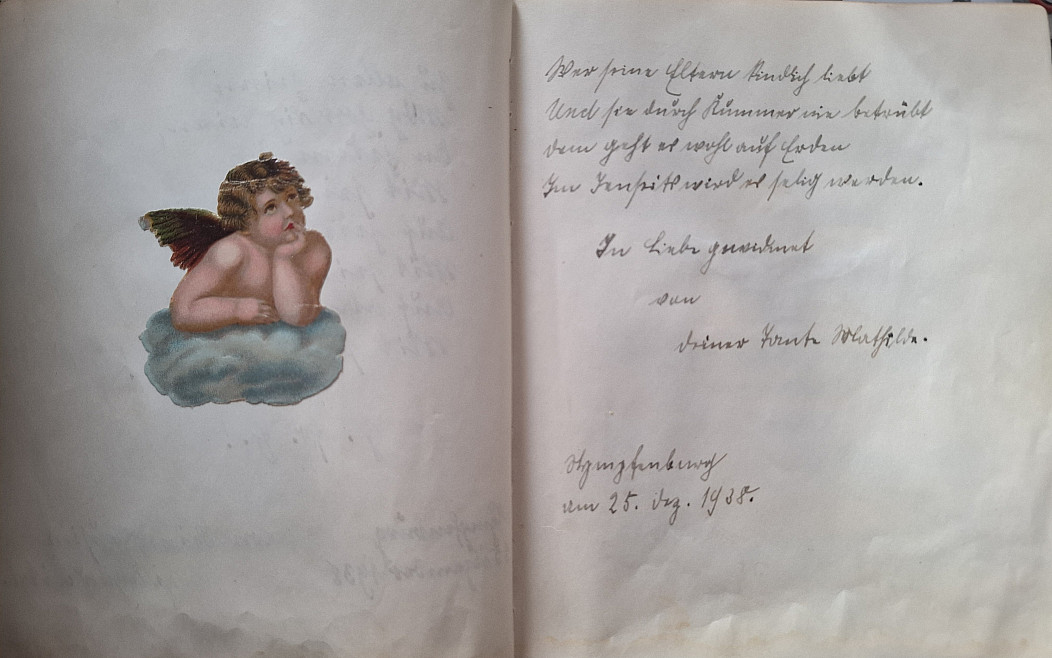 Wer seine Eltern kindlich liebt
Und sie durch Kummer nie betrübt
dem geht es wohl auf Erden
Im Jenseits wird es selig werden.
In Liebe gewidmet
von
deiner Tante Mathilde.
Nympfenburg
am 25. Dez. 1938.